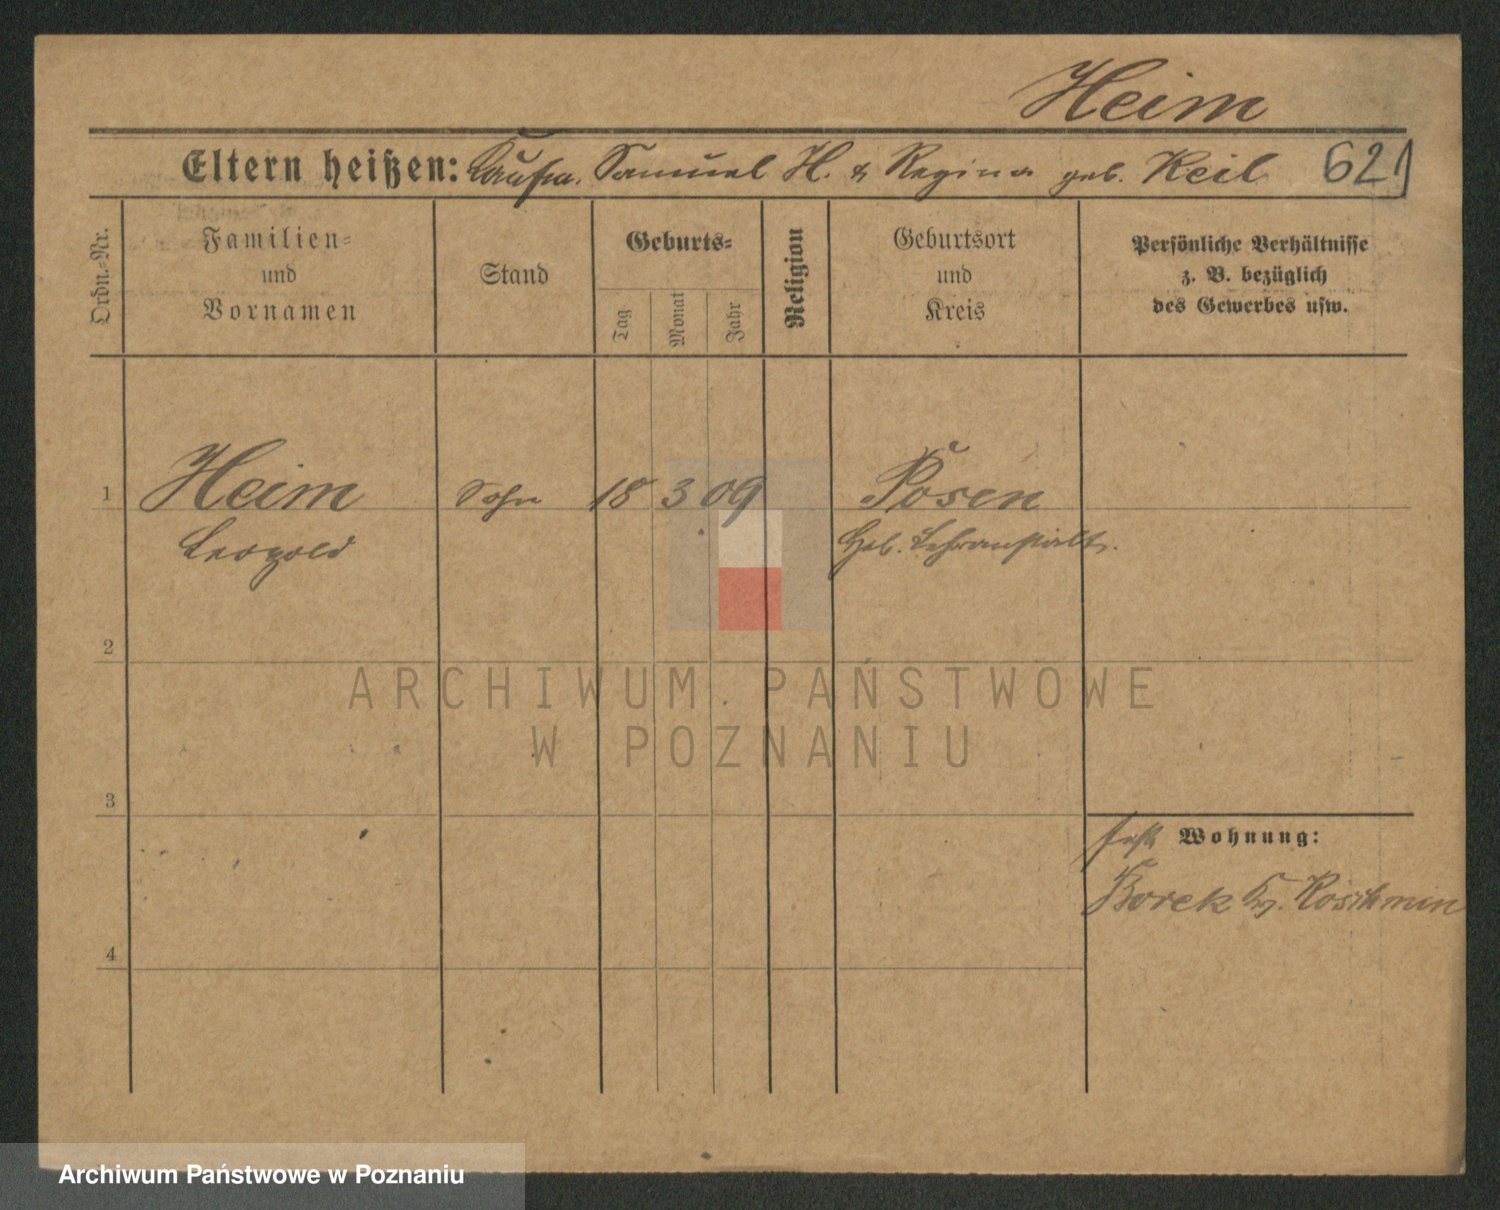 Heim
Eltern heißen: Kaufm. Samuel H. & Regina geb. Keil 621
Ordn.=Nr.
Familien=
und
Vornamen
Stand
Geburts=
Tag
Monat
Jahr
Religion
Geburtsort
und
Kreis
Persönliche Verhältnisse
z. B. bezüglich
des Gewerbes usw.
1 Heim Sohn 18 3 09 Posen
Leopold Heb. Lehranstalt.
2
ARCHIWUM PAŃSTWOWE
W POZNANIU
3
Wohnung:
Borek Kr. Koschmin
4
Archiwum Państwowe w Poznaniu